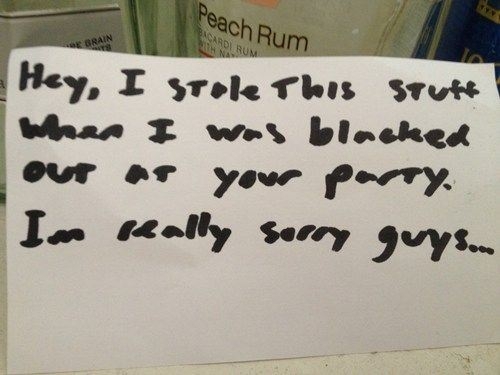 RE BRAIN
Peach Rum
BACARDI RUM
WITH NAT
Hey, I stole this stuff
when I was blacked
out at your party.
I'm really sorry guys...